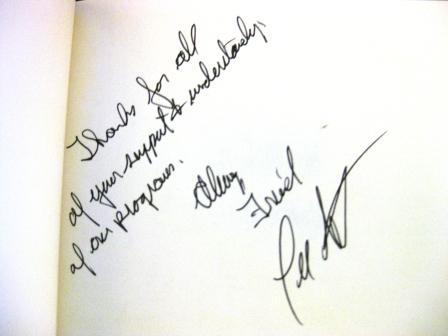 Thanks for all
of your support & understanding
of our programs.
Always
Friend